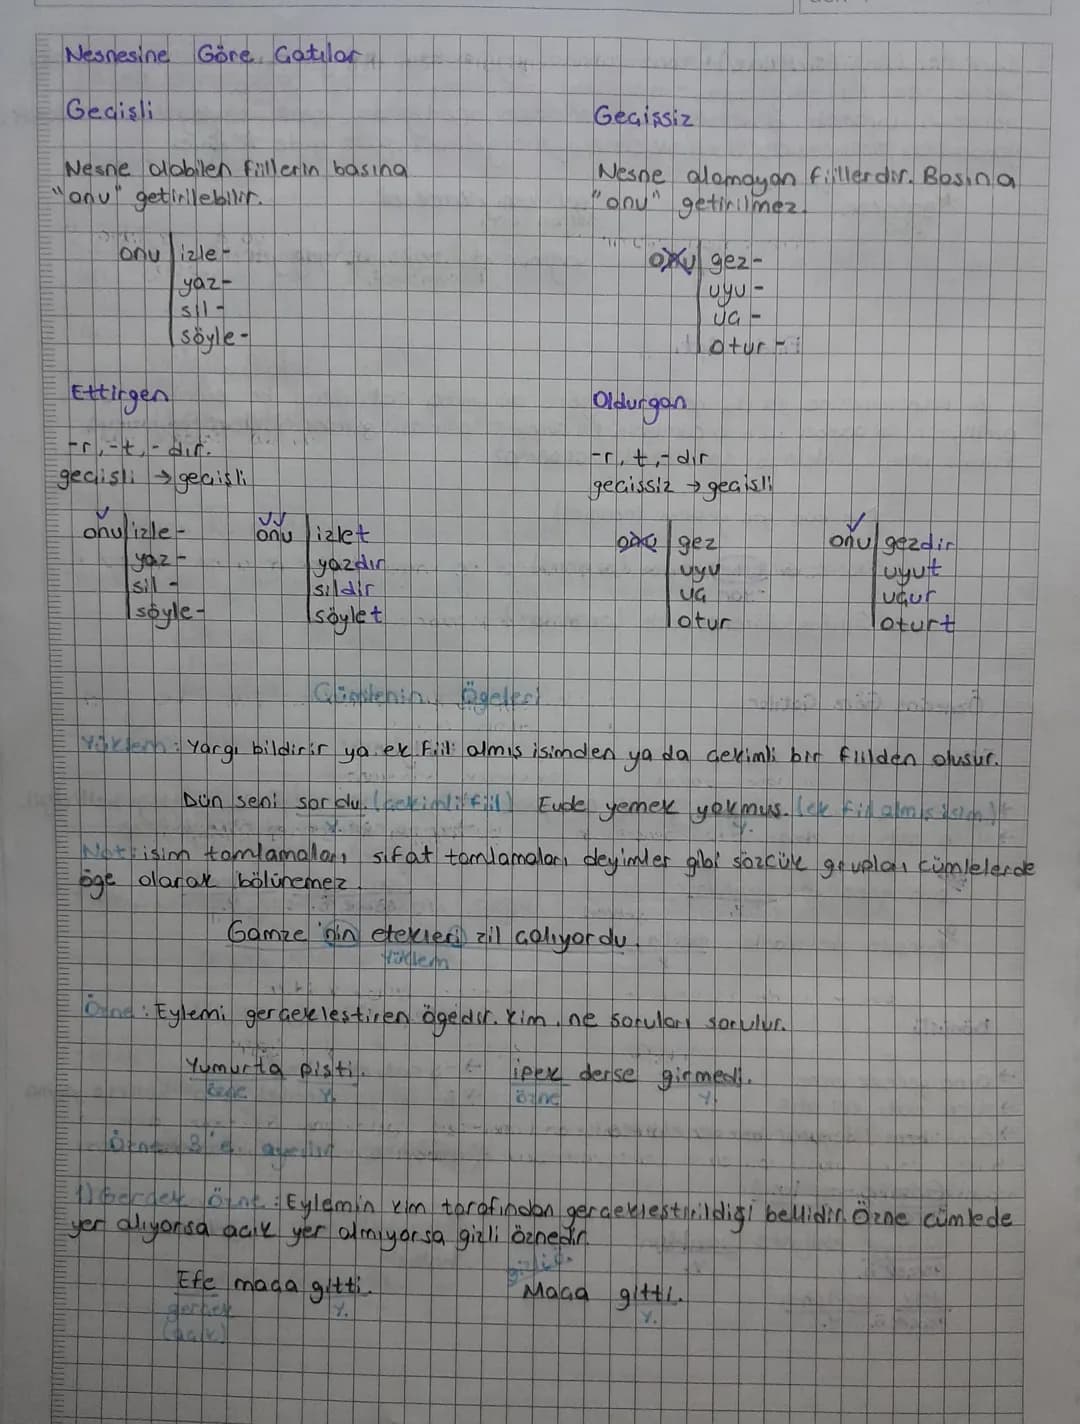 Nesnesine Göre Çatılar
Geçişli
Nesne alabilen fiillerin başına
"onu" getirilebilir.
onu izle-
yaz-
sil-
söyle-
Geçişsiz
Nesne alamayan fiillerdir. Başına
"onu" getirilmez.
onu gez-
uyu-
uç-
otur-
Ettirgen
-r, -t, -dır.
geçişli → geçişli
onu izle-
yaz-
sil-
söyle-
onu izlet
yazdır
sildir
söylet
Oldurgan
-r, t, -dır
geçissiz → geçişli
onu gez
uyu
uç
otur
onu gezdir
uyut
uçur
oturt
Cümlenin Ögeleri
Yüklem: Yargı bildirir ya ek fiil almış isimden ya da çekimli bir fiilden oluşur.
Dün seni sordu. (çekimli fiil) Evde yemek yokmuş. (ek fiil almış isim)
Y. Y.
Not: isim tamlamaları, sıfat tamlamaları, deyimler gibi sözcük grupları cümlelerde
öge olarak bölünemez.
Gamze'nin etekleri zil çalıyordu.
Yüklem
Özne: Eylemi gerçekleştiren ögedir. Kim, ne soruları sorulur.
Yumurta pişti. ipek derse girmedi.
özne Y. özne Y.
Özne 3'e ayrılır
1) Gerçek Özne: Eylemin kim tarafından gerçekleştirildiği bellidir. Özne cümlede
yer alıyorsa açık yer almıyorsa gizli öznedir.
gizli ö.
Efe maça gitti. Maça gitti.
gerçek Y. Y.
(açık)